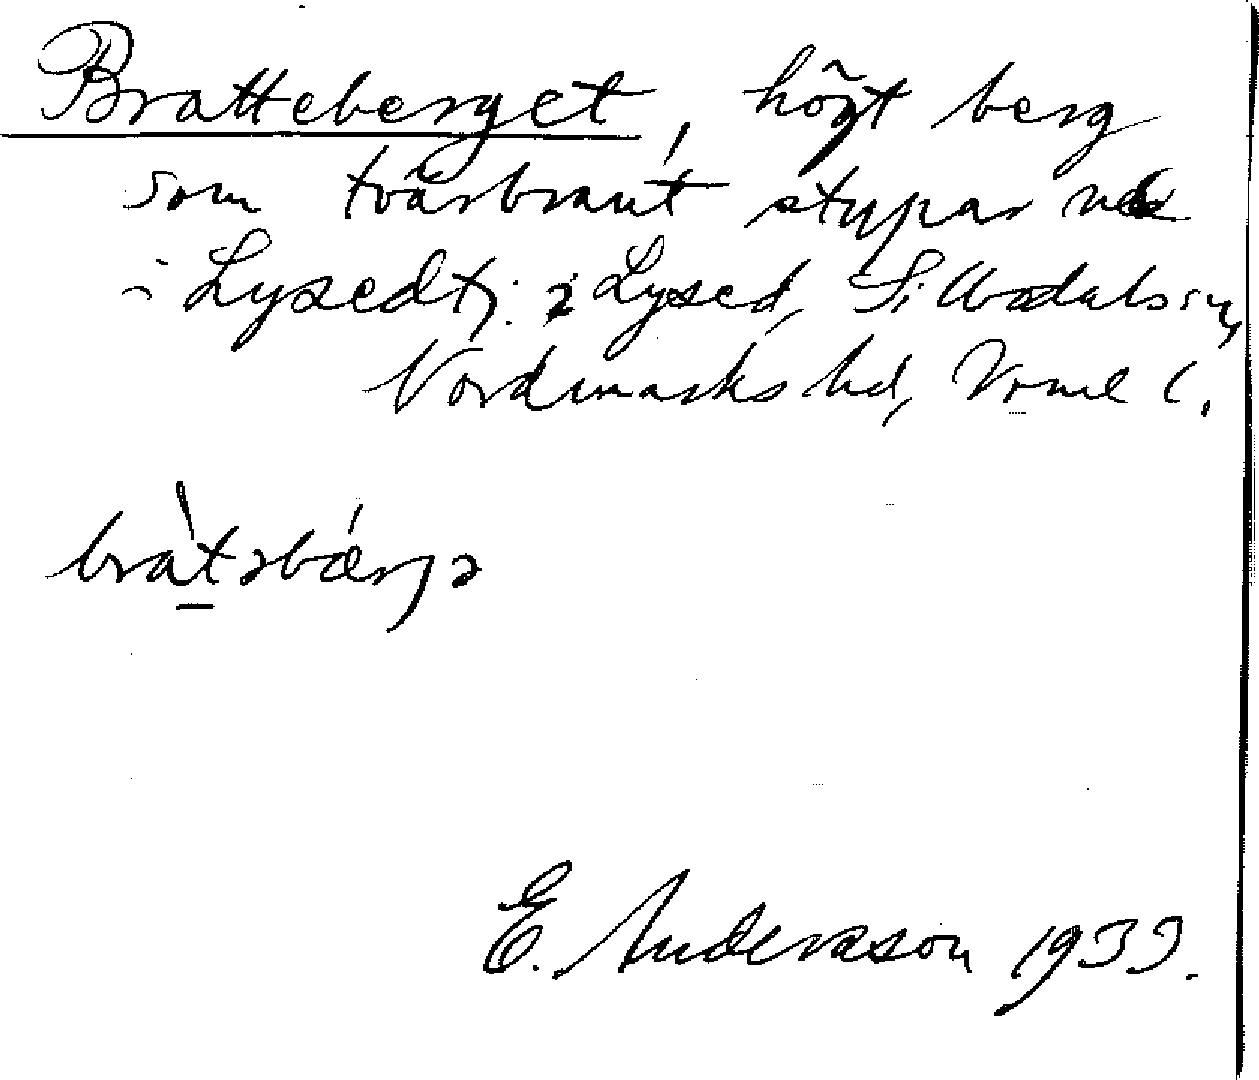 Bratteberget, högt berg
som tvärbrant stupar ned
i Lysedtj. i Lysed, Sillbodals sn,
Nordmarks hd, Vrml l.
bràtəbǽrjə
E. Andersson 1933.